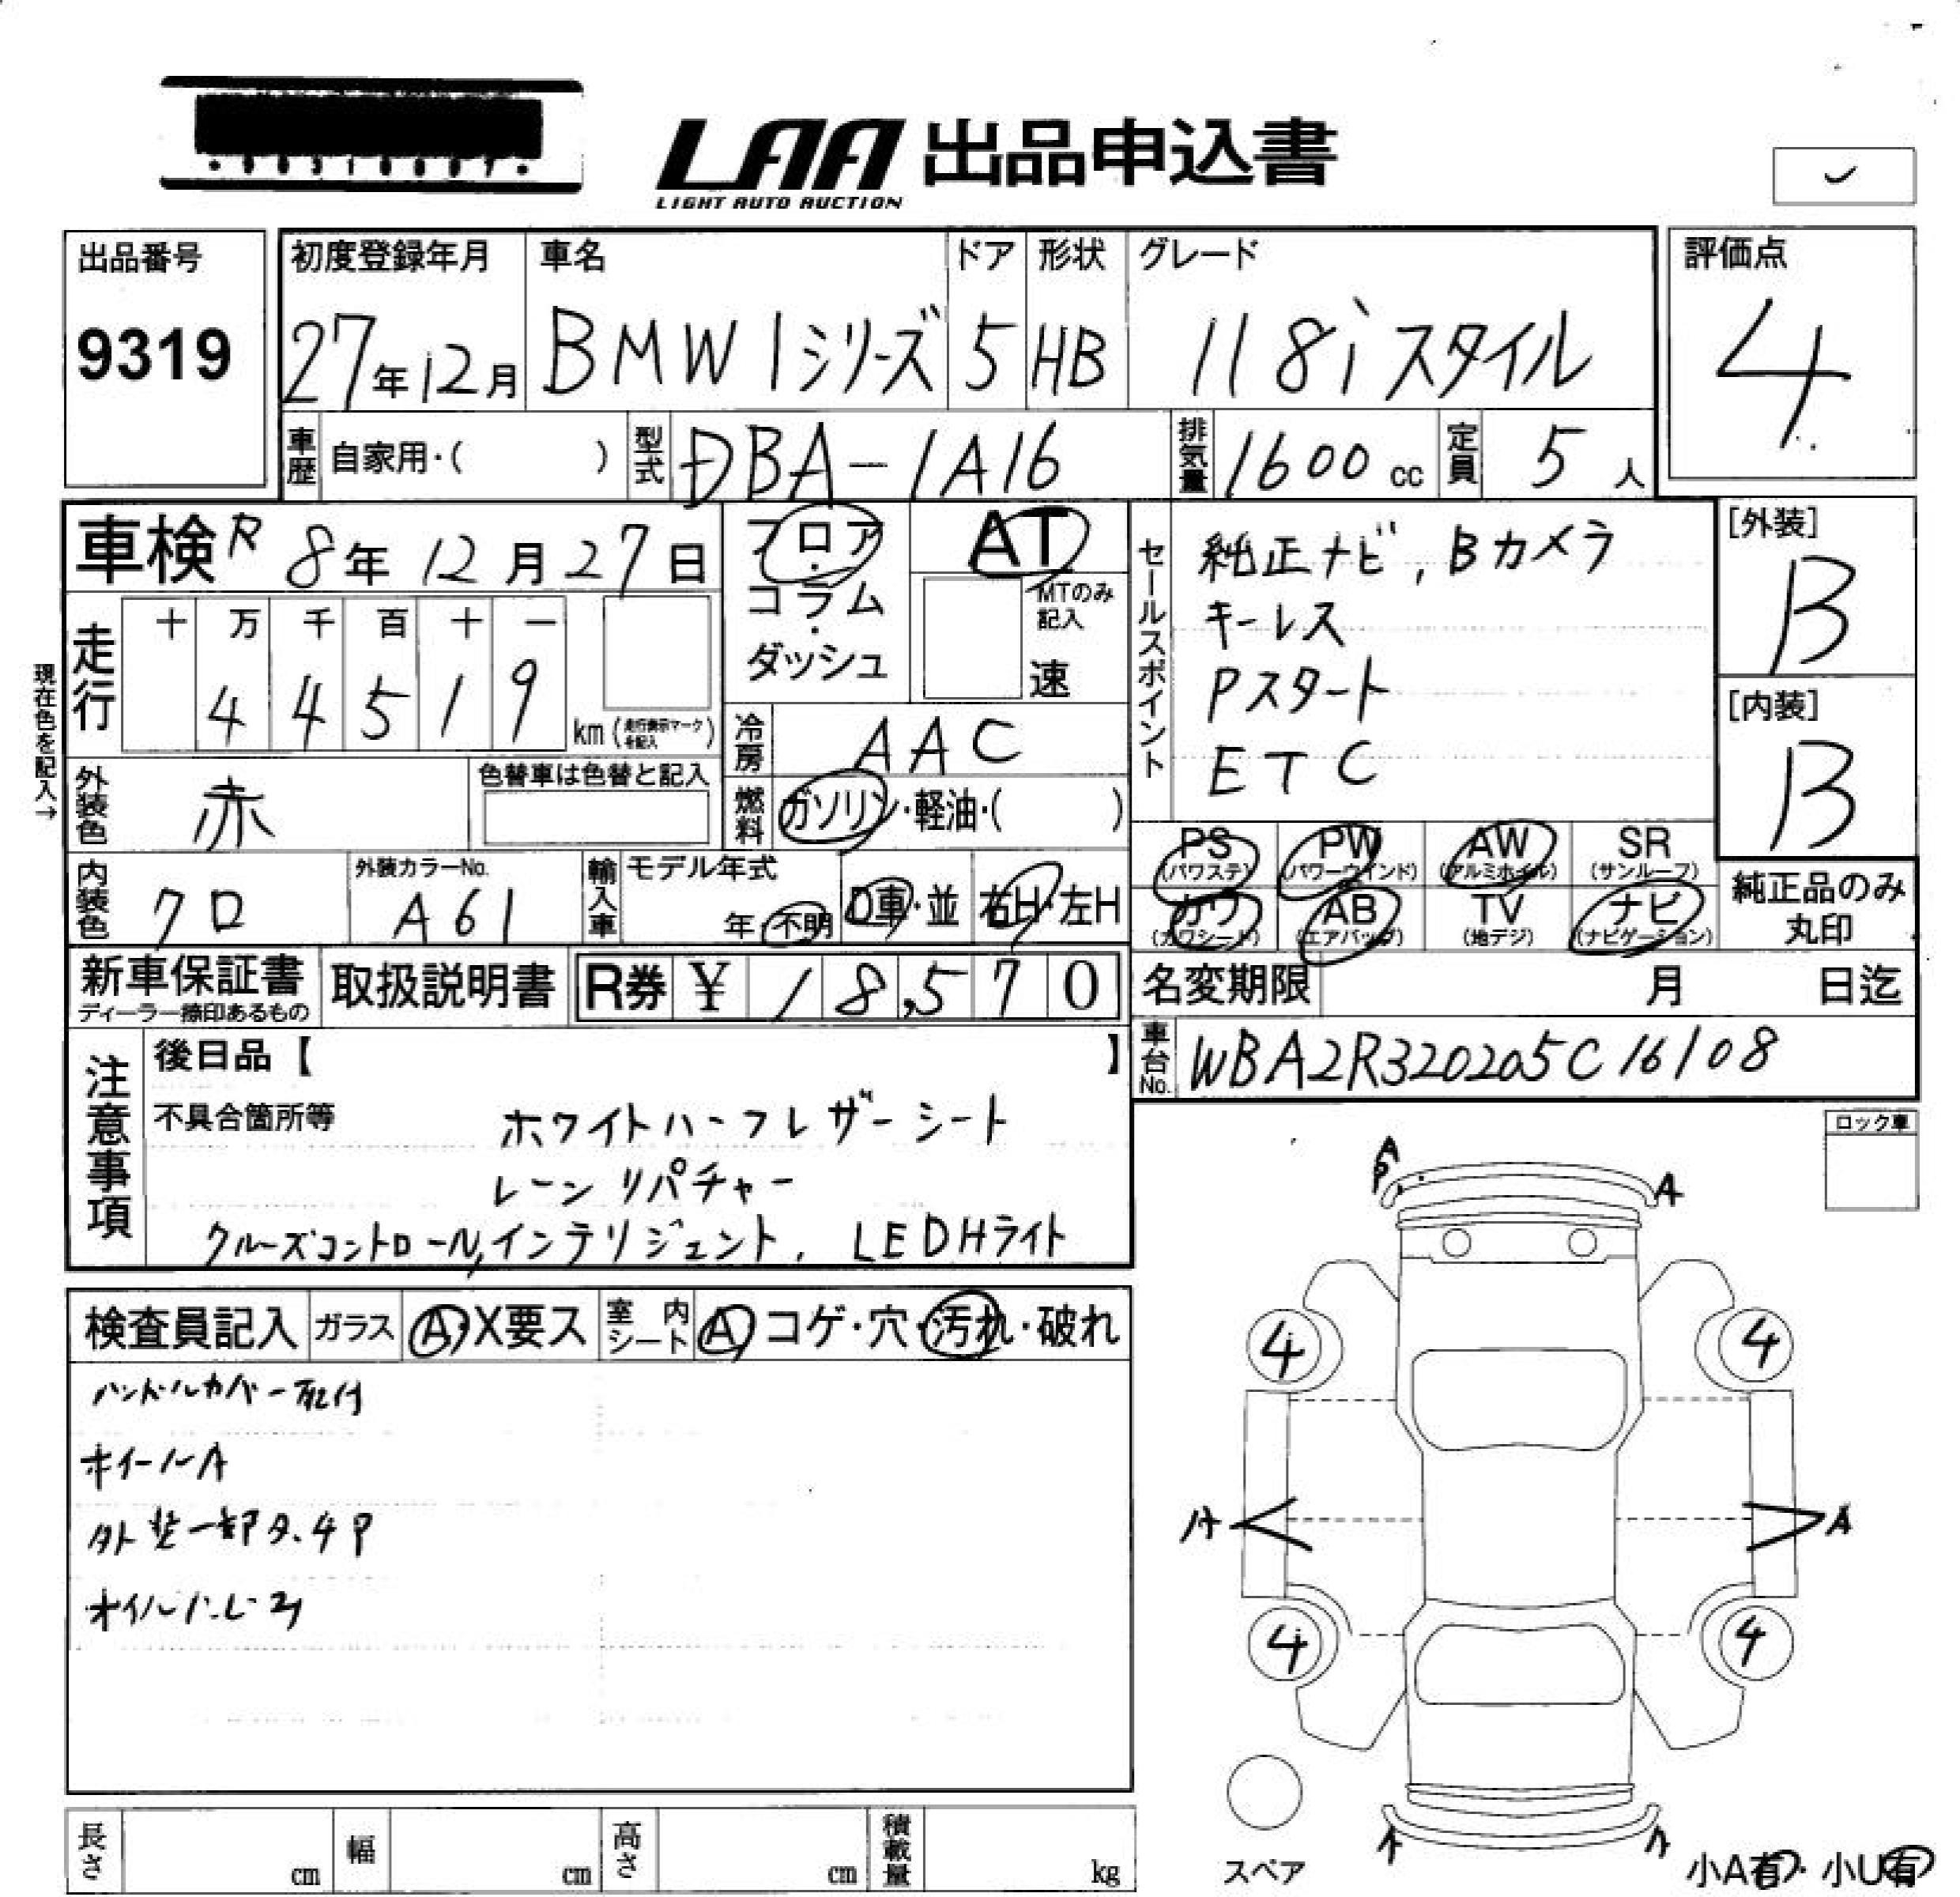 LAA 出品申込書
LIGHT AUTO AUCTION
出品番号
9319
初度登録年月
27年12月
車名
BMW1シリーズ
ドア
5
形状
HB
グレード
118iスタイル
評価点
4
車歴 自家用・( )
型式 DBA-1A16
排気量 1600cc
定員 5人
車検 R8年12月27日
フロア・コラム・ダッシュ
AT
MTのみ記入
速
セールスポイント
純正ナビ, Bカメラ
キーレス
Pスタート
ETC
[外装]
B
[内装]
B
現在色を記入→
走行
十 万 千 百 十 一
4 4 5 1 9
km(走行表示マークを記入)
冷房 AAC
外装色 赤
色替車は色替と記入
燃料 ガソリン・軽油・( )
内装色 クロ
外装カラーNo.
A61
輸入車
モデル年式
年・不明
D車・並
右H・左H
PS (パワステ)
PW (パワーウインド)
AW (アルミホイル)
SR (サンルーフ)
カワ (カワシート)
AB (エアバッグ)
TV (地デジ)
ナビ (ナビゲーション)
純正品のみ丸印
新車保証書
ディーラー捺印あるもの
取扱説明書
R券 ¥ 18,570
名変期限 月 日迄
車台No. WBA2R320205C16108
注意事項
後日品【 】
不具合箇所等
ホワイトハーフレザーシート
レーンリパチャー
クルーズコントロール,インテリジェント, LEDHライト
ロック車
検査員記入
ガラス A・X要ス
室内シート A・コゲ・穴・汚れ・破れ
ハンドルカバー取付
ホイールA
外装一部タ.4P
A
P
A
4 4
A A
4 4
A A
スペア
小A有・小U有
長さ cm
幅 cm
高さ cm
積載量 kg